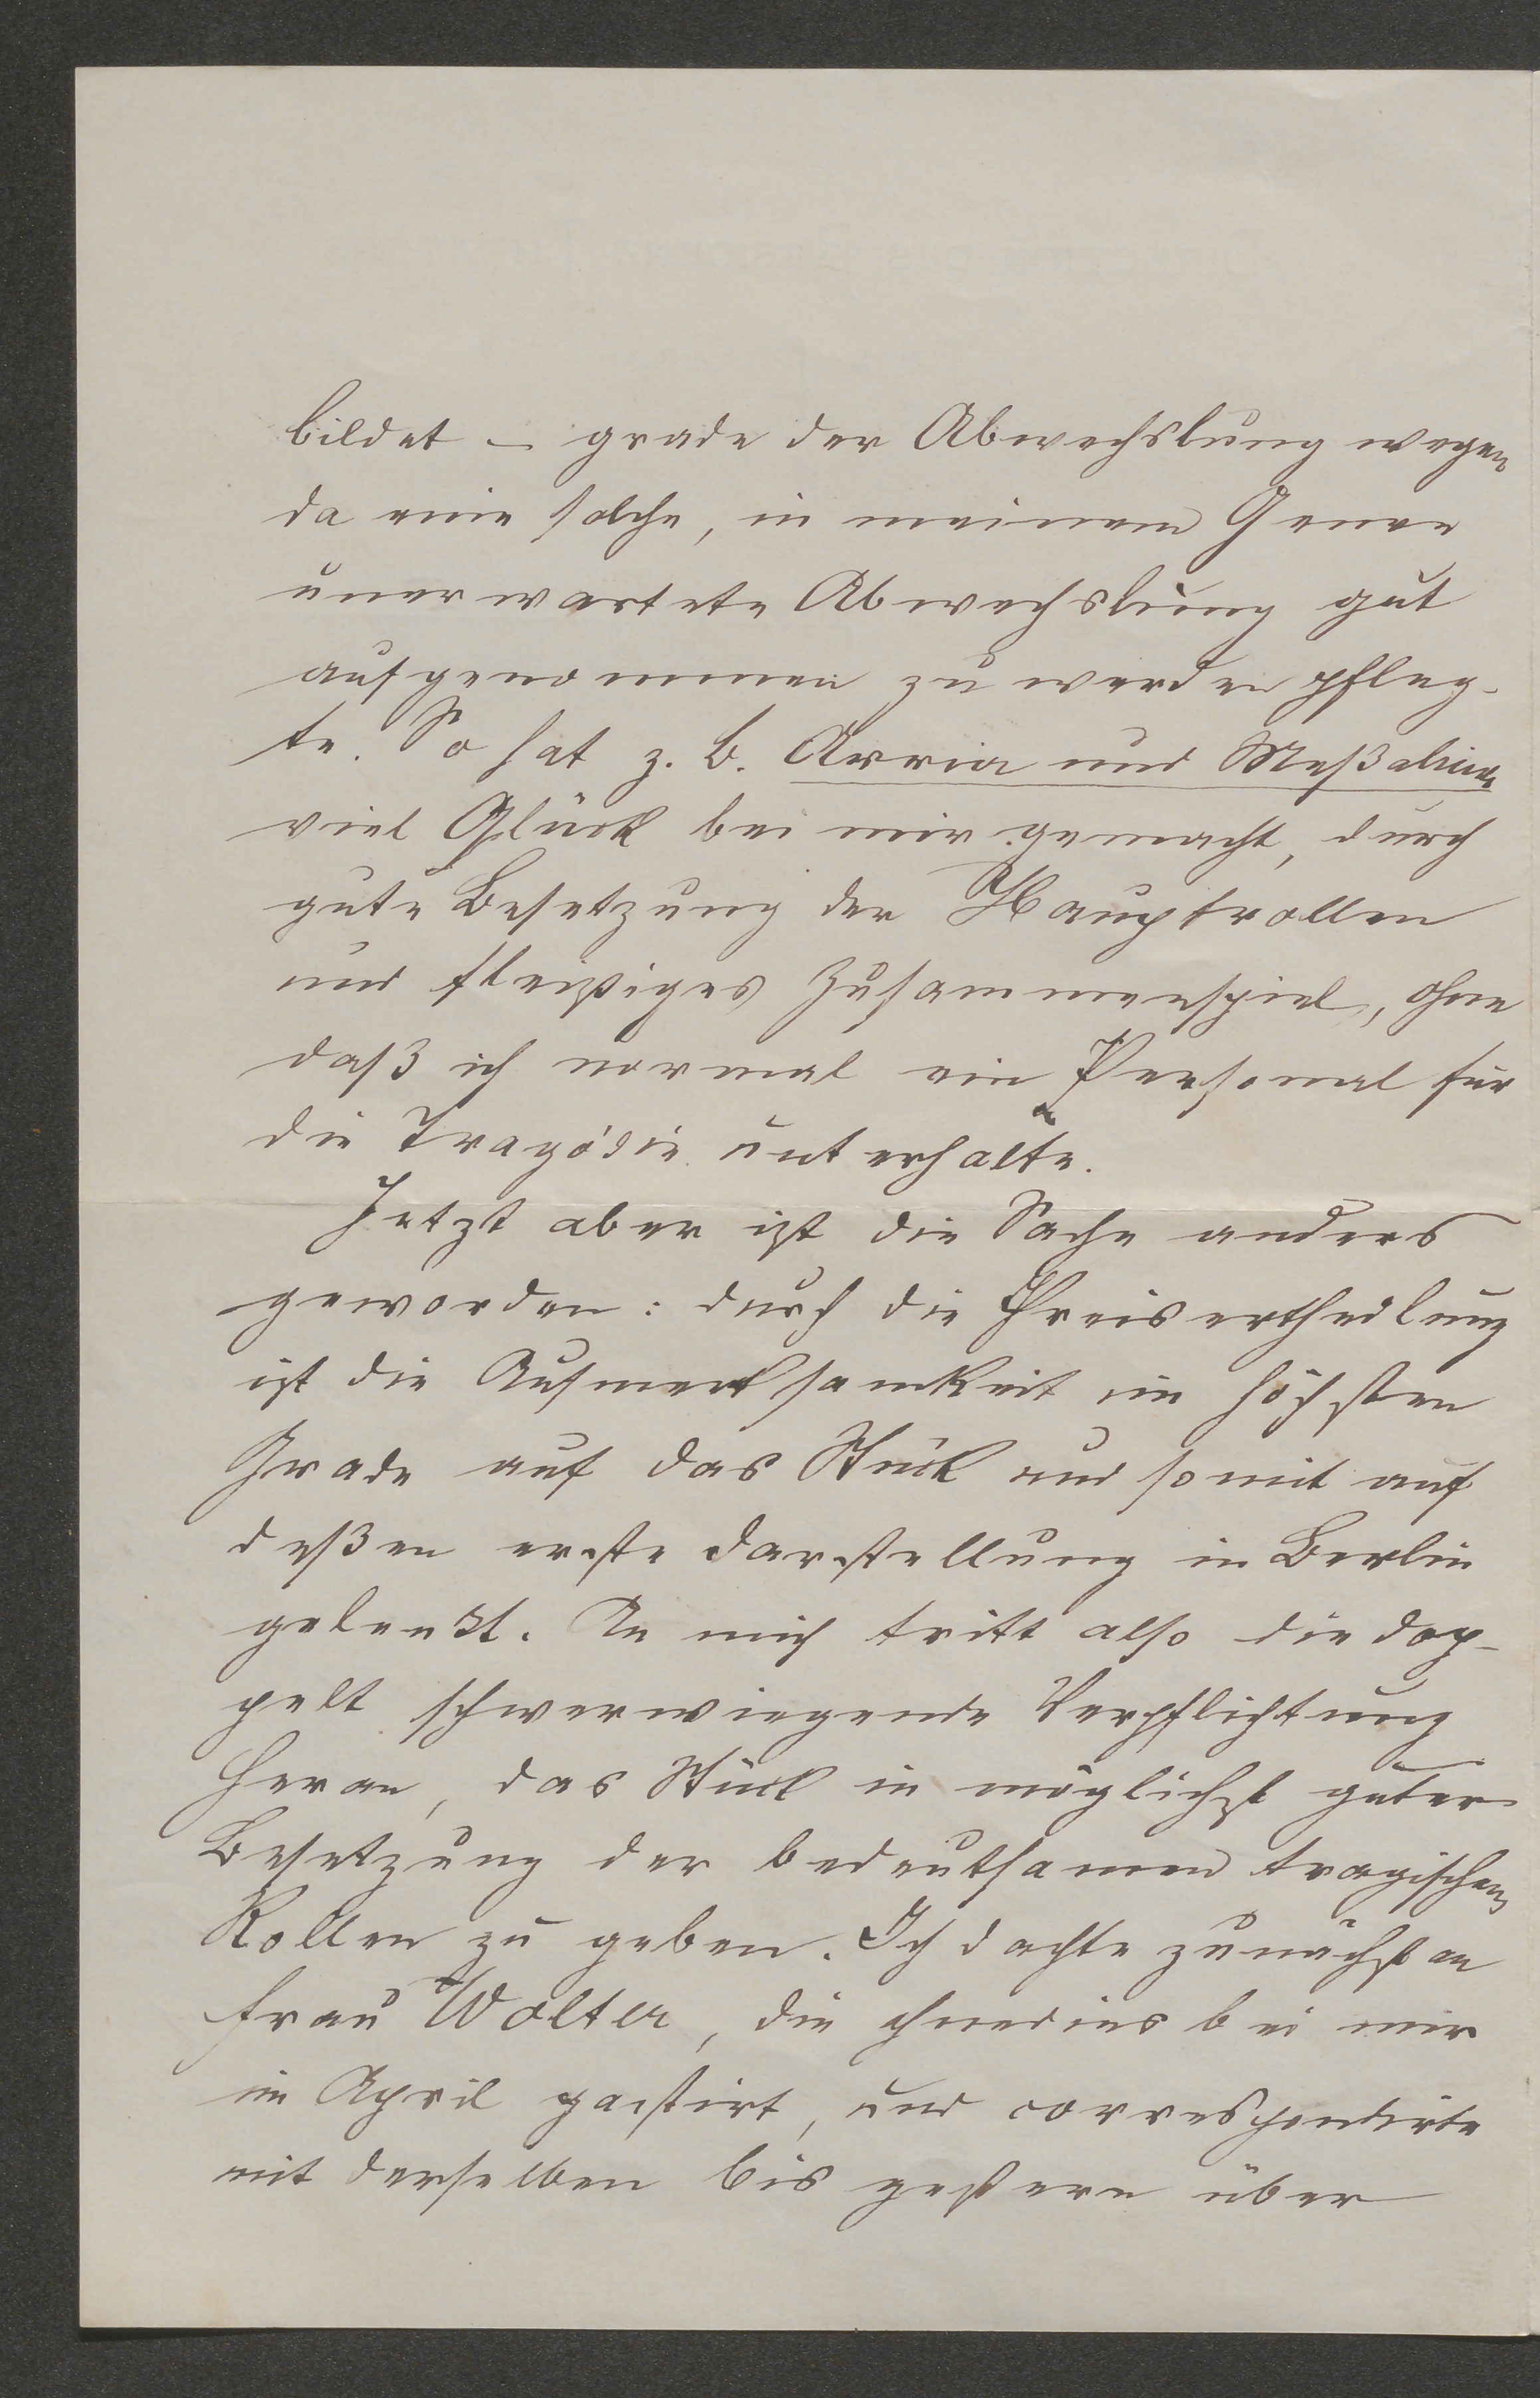 bildet – grade der Abwechslung wegen
da eine solche, in meinem Genre
unerwartete Abwechslung gut
aufgenommen zu werden pfleg-
te. So hat z. B. Arria und Meßalina
viel Glück bei mir gemacht, durch
gute Besetzung der Hauptrollen
und fleißiges Zusammenspiel, ohne
daß ich normal ein Personal für
die Tragödie unterhalte.
Jetzt aber ist die Sache anders
geworden: durch die Preisertheilung
ist die Aufmerksamkeit im höchsten
Grade auf das Stück und somit auf
deßen erste Darstellung in Berlin
gelenkt. An mich tritt also die dop-
pelt schwerwiegende Verpflichtung
heran, das Stück in möglichst guter
Besetzung der bedeuthsamen tragischen
Rollen zu geben. Ich dachte zunächst an
Frau Wolter, die ohnedies bei mir
im April gastirt, und correspondirte
mit derselben bis gestern über